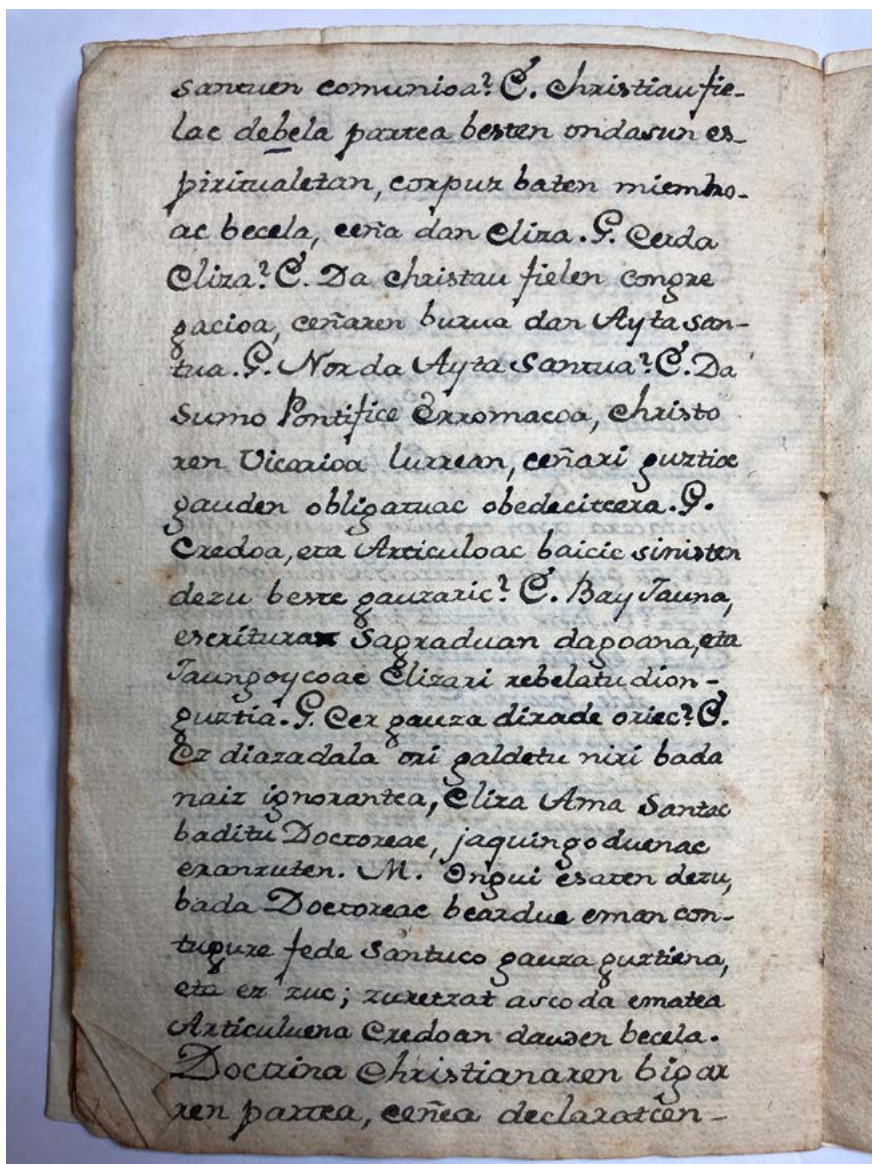 santuen comunioa? E. Christiau fie-
lac debela partea besten ondasun es-
piritualetan, corpuz baten miembro-
ac becela, ceña dan Eliza. G. Cerda
Eliza? E. Da christau fielen congre
gacioa, ceñaren burua dan Ayta san-
tua. G. Nor da Ayta Santua? E. Da
Sumo Pontifice Erromacoa, Christo
ren Vicarioa lurrean, ceñari guztioc
gauden obligatuac obedecitcera. G.
Credoa, eta Articuloac baicic sinisten
dezu beste gauzaric? E. Bay Jauna,
escritura Sagraduan dagoana, eta
Jaungoycoac Elizari rebelatu dion-
guztia. G. Cer gauza dirade oriec? E.
Ez diazadala ori galdetu niri bada
naiz ignorantea, Eliza Ama Santac
baditu Doctoreac, jaquingo duenac
eranzuten. M. Ongui esaten dezu,
bada Doctoreac beardue eman con-
tugure fede Santuco gauza guztiena,
eta ez zuc; zuretzat asco da ematea
Articuluena Credoan dauden becela.
Doctrina Christianaren bigar
ren partea, ceñea declaratcen-